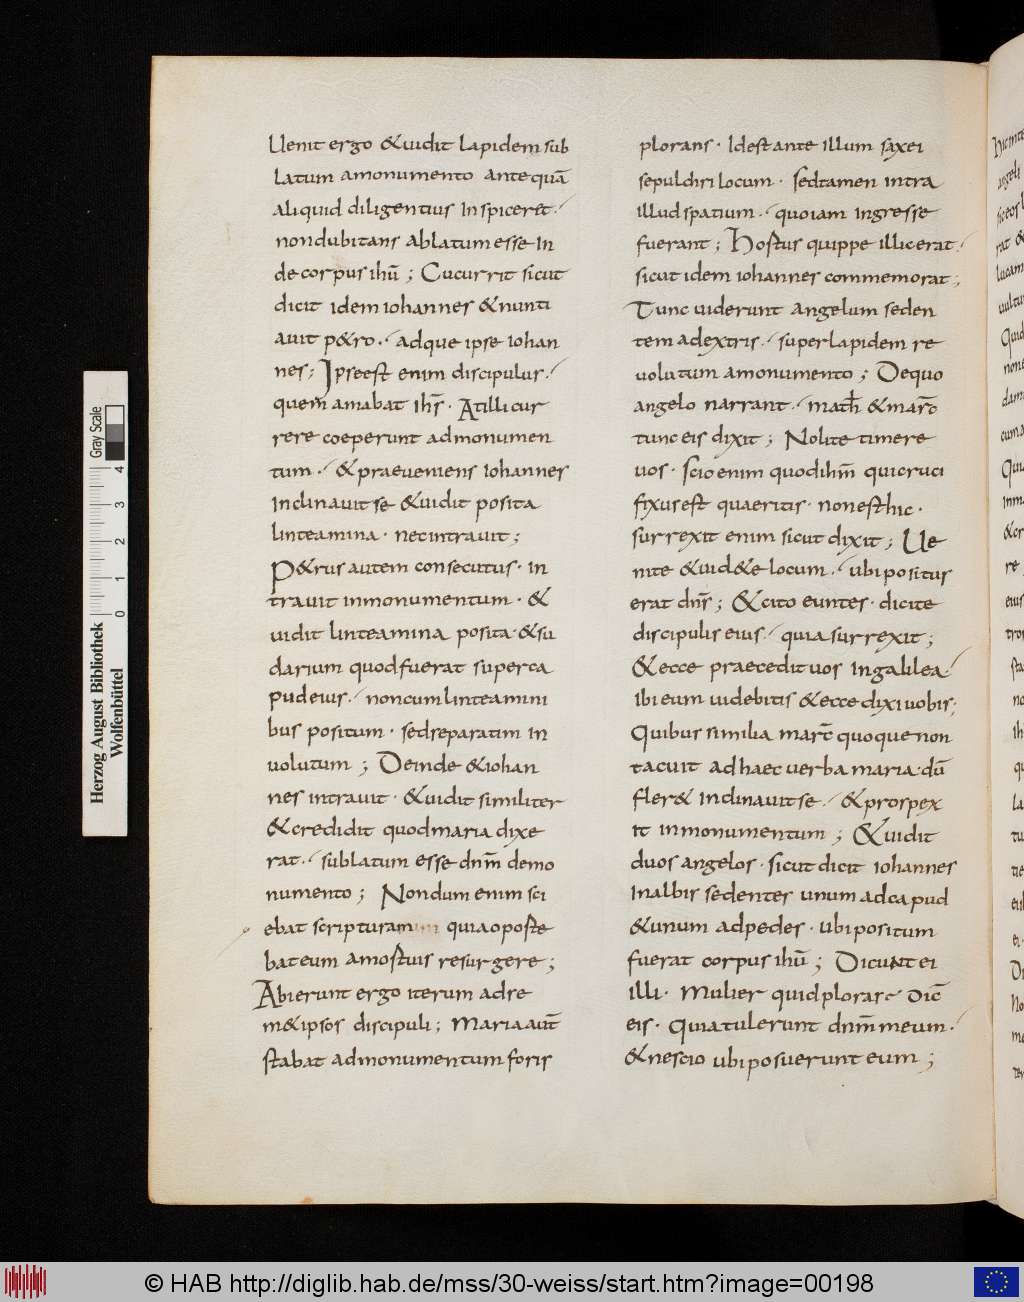 Uenit ergo & uidit lapidem sub
latum a monumento ante quā
aliquid diligentius inspiceret·
non dubitans ablatum esse in
de corpus ihū; Cucurrit sicut
dicit idem iohannes & nunti
auit p&ro· adque ipse iohan
nes; Ipse est enim discipulus·
quem amabat ihs̄· At illi cur
rere coeperunt ad monumen
tum· & praeueniens iohannes
inclinauit se & uidit posita
linteamina· nec intrauit;
P&rus autem consecutus· in
trauit in monumentum· &
uidit linteamina posita· & su
darium quod fuerat super ca
pud eius· non cum linteamini
bus positum· sed separatim in
uolutum; Deinde & iohan
nes intrauit· & uidit similiter
& credidit quod maria dixe
rat· sublatum esse dnm̄ de mo
numento; Nondum enim sci
ebat scripturam quia oposte
bat eum a mostuis resurgere;
Abierunt ergo iterum ad se
m&ipsos discipuli; Maria aūt
stabat ad monumentum foris
plorans· Id est ante illum saxei
sepulchri locum· sed tamen intra
illud spatium· quo iam ingresse
fuerant; Hostus quippe illic erat·
sicut idem iohannes commemorat;
Tunc uiderunt angelum seden
tem a dextris· super lapidem re
uolutum a monumento; De quo
angelo narrant· math̄ & marc̄
tunc eis dixit; Nolite timere
uos· scio enim quod ihm̄ qui cruci
fixus est quaeritis· non est hic·
surrexit enim sicut dixit; Ue
nite & uid&e locum· ubi positus
erat dns̄; & cito euntes· dicite
discipulis eius· quia surrexit;
& ecce praecedit uos in galilea·
ibi eum uidebitis & ecce dixi uobis;
Quibus similia marc̄ quoque non
tacuit ad haec uerba maria· dū
fler& inclinauit se· & prospex
it in monumentum; & uidit
duos angelos· sicut dicit iohannes
in albis sedentes unum ad capud
& unum ad pedes· ubi positum
fuerat corpus ihū; Dicunt ei
illi· Mulier quid ploras· Dic̄
eis· Quia tulerunt dnm̄ meum·
& nescio ubi posuerunt eum;
Herzog August Bibliothek
Wolfenbüttel
Gray Scale
0 1 2 3 4
© HAB http://diglib.hab.de/mss/30-weiss/start.htm?image=00198